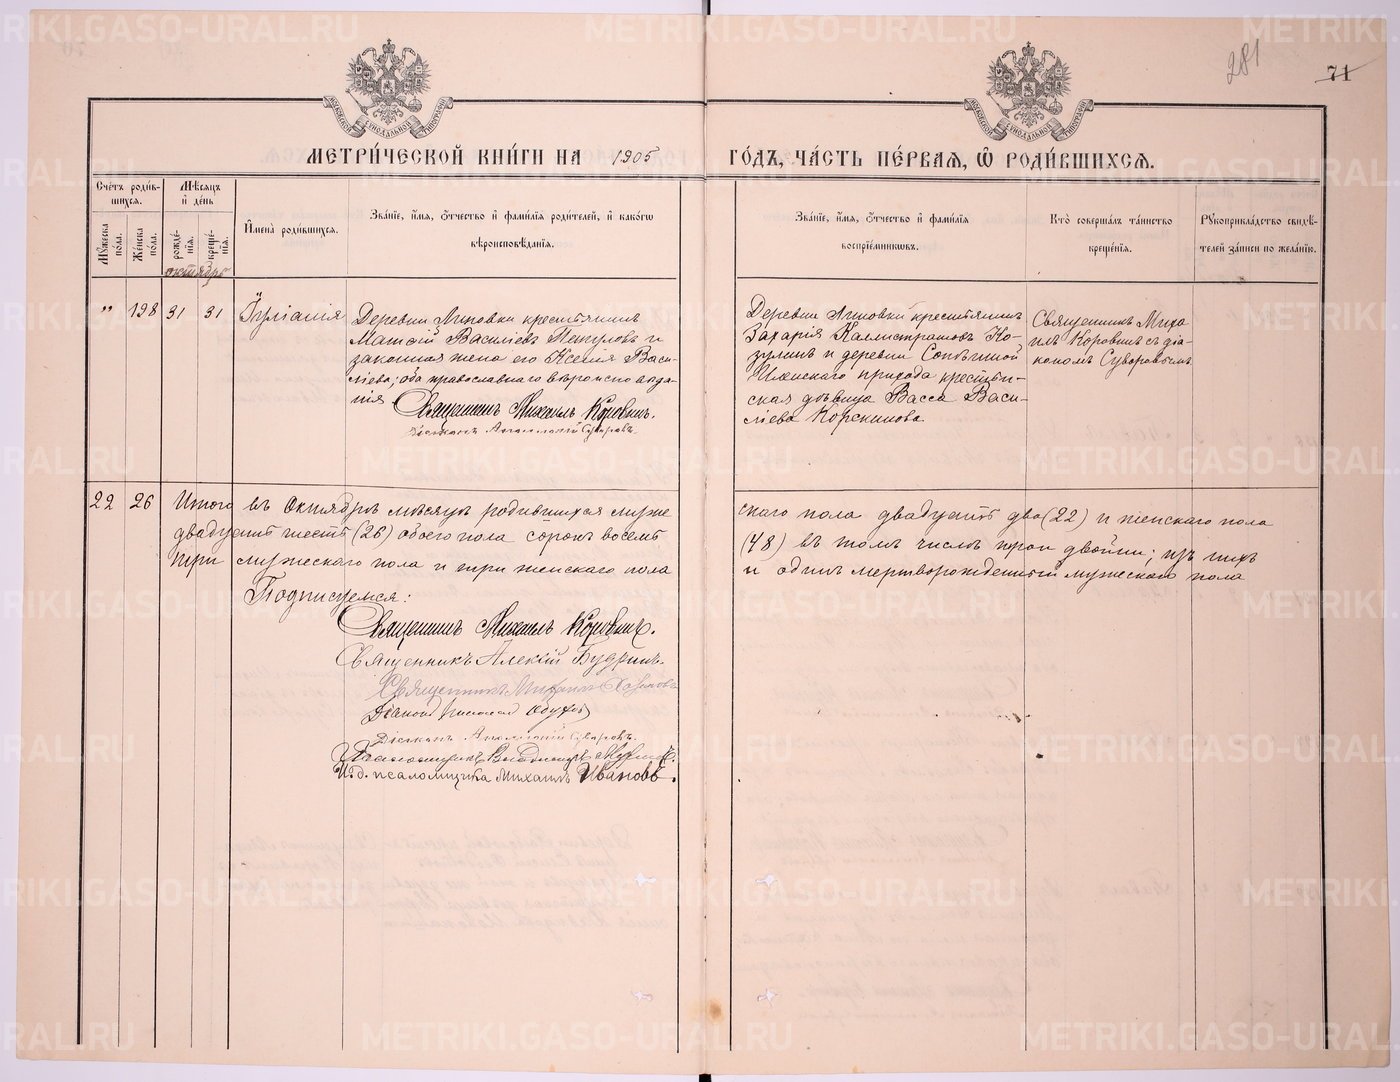 281
71
МОСКОВСКОЙ СУНОДАЛЬНОЙ ТИПОГРАФІИ
МОСКОВСКОЙ СУНОДАЛЬНОЙ ТИПОГРАФІИ
МЕТРИ́ЧЕСКОЙ КНИ́ГИ НА 1905 ГО́ДЪ, ЧА́СТЬ ПЕ́РВАЯ, Ѡ҆ РОДИ́ВШИХСѦ.
Сче́тъ роди́вшихся.
Мѣ́сяцъ и҆ де́нь
Мꙋ́жеска по́ла.
Же́нска по́ла.
рожде́нїя.
креще́нїя.
И҆мена̀ роди́вшихся.
Зва́нїе, и҆́мя, ѻ҆́тчество и҆ фами́лїя роди́телей, и҆ како́гѡ вѣроисповѣ́данїя.
Зва́нїе, и҆́мя, ѻ҆́тчество и҆ фами́лїя воспрїе́мникѡвъ.
Кто̀ соверша́лъ та́инство креще́нїя.
Рꙋкоприкла́дство свидѣ́телей за́писи по жела́нїю.
октябрь
" 198 31 31 Іуліанія
Деревни Липовки крестьянинъ
Матѳій Васильевъ Пѣтуловъ и
законная жена его Ксенія Васи-
ліева; оба православнаго вѣроисповѣда-
нія
Священникъ Михаилъ Коровинъ.
Діаконъ Аполлоній Суворовъ.
Деревни Липовки крестьянинъ
Захарія Каллистратовъ Ко-
зулинъ и деревни
прихода крестьян-
ская дѣвица Васса Васи-
ліева
Священникъ Миха
илъ Коровинъ съ діа-
кономъ Суворовымъ
22 26 Итого въ Октябрѣ мѣсяцѣ родившихся муже
скаго пола двадцать два (22) и женскаго пола
двадцать шесть (26) обоего пола сорокъ восемь
(48) въ томъ числѣ три двойни; изъ нихъ
три мужескаго пола и три женскаго пола
и одинъ мертворожденный мужескаго пола
Подписуемся:
Священникъ Михаилъ Коровинъ.
Священникъ Алексій Будринъ.
Священникъ Михаилъ
Діаконъ
Діаконъ Аполлоній Суворовъ.
Псаломщикъ
И. д. псаломщика Михаилъ Ивановъ.
METRIKI.GASO-URAL.RU